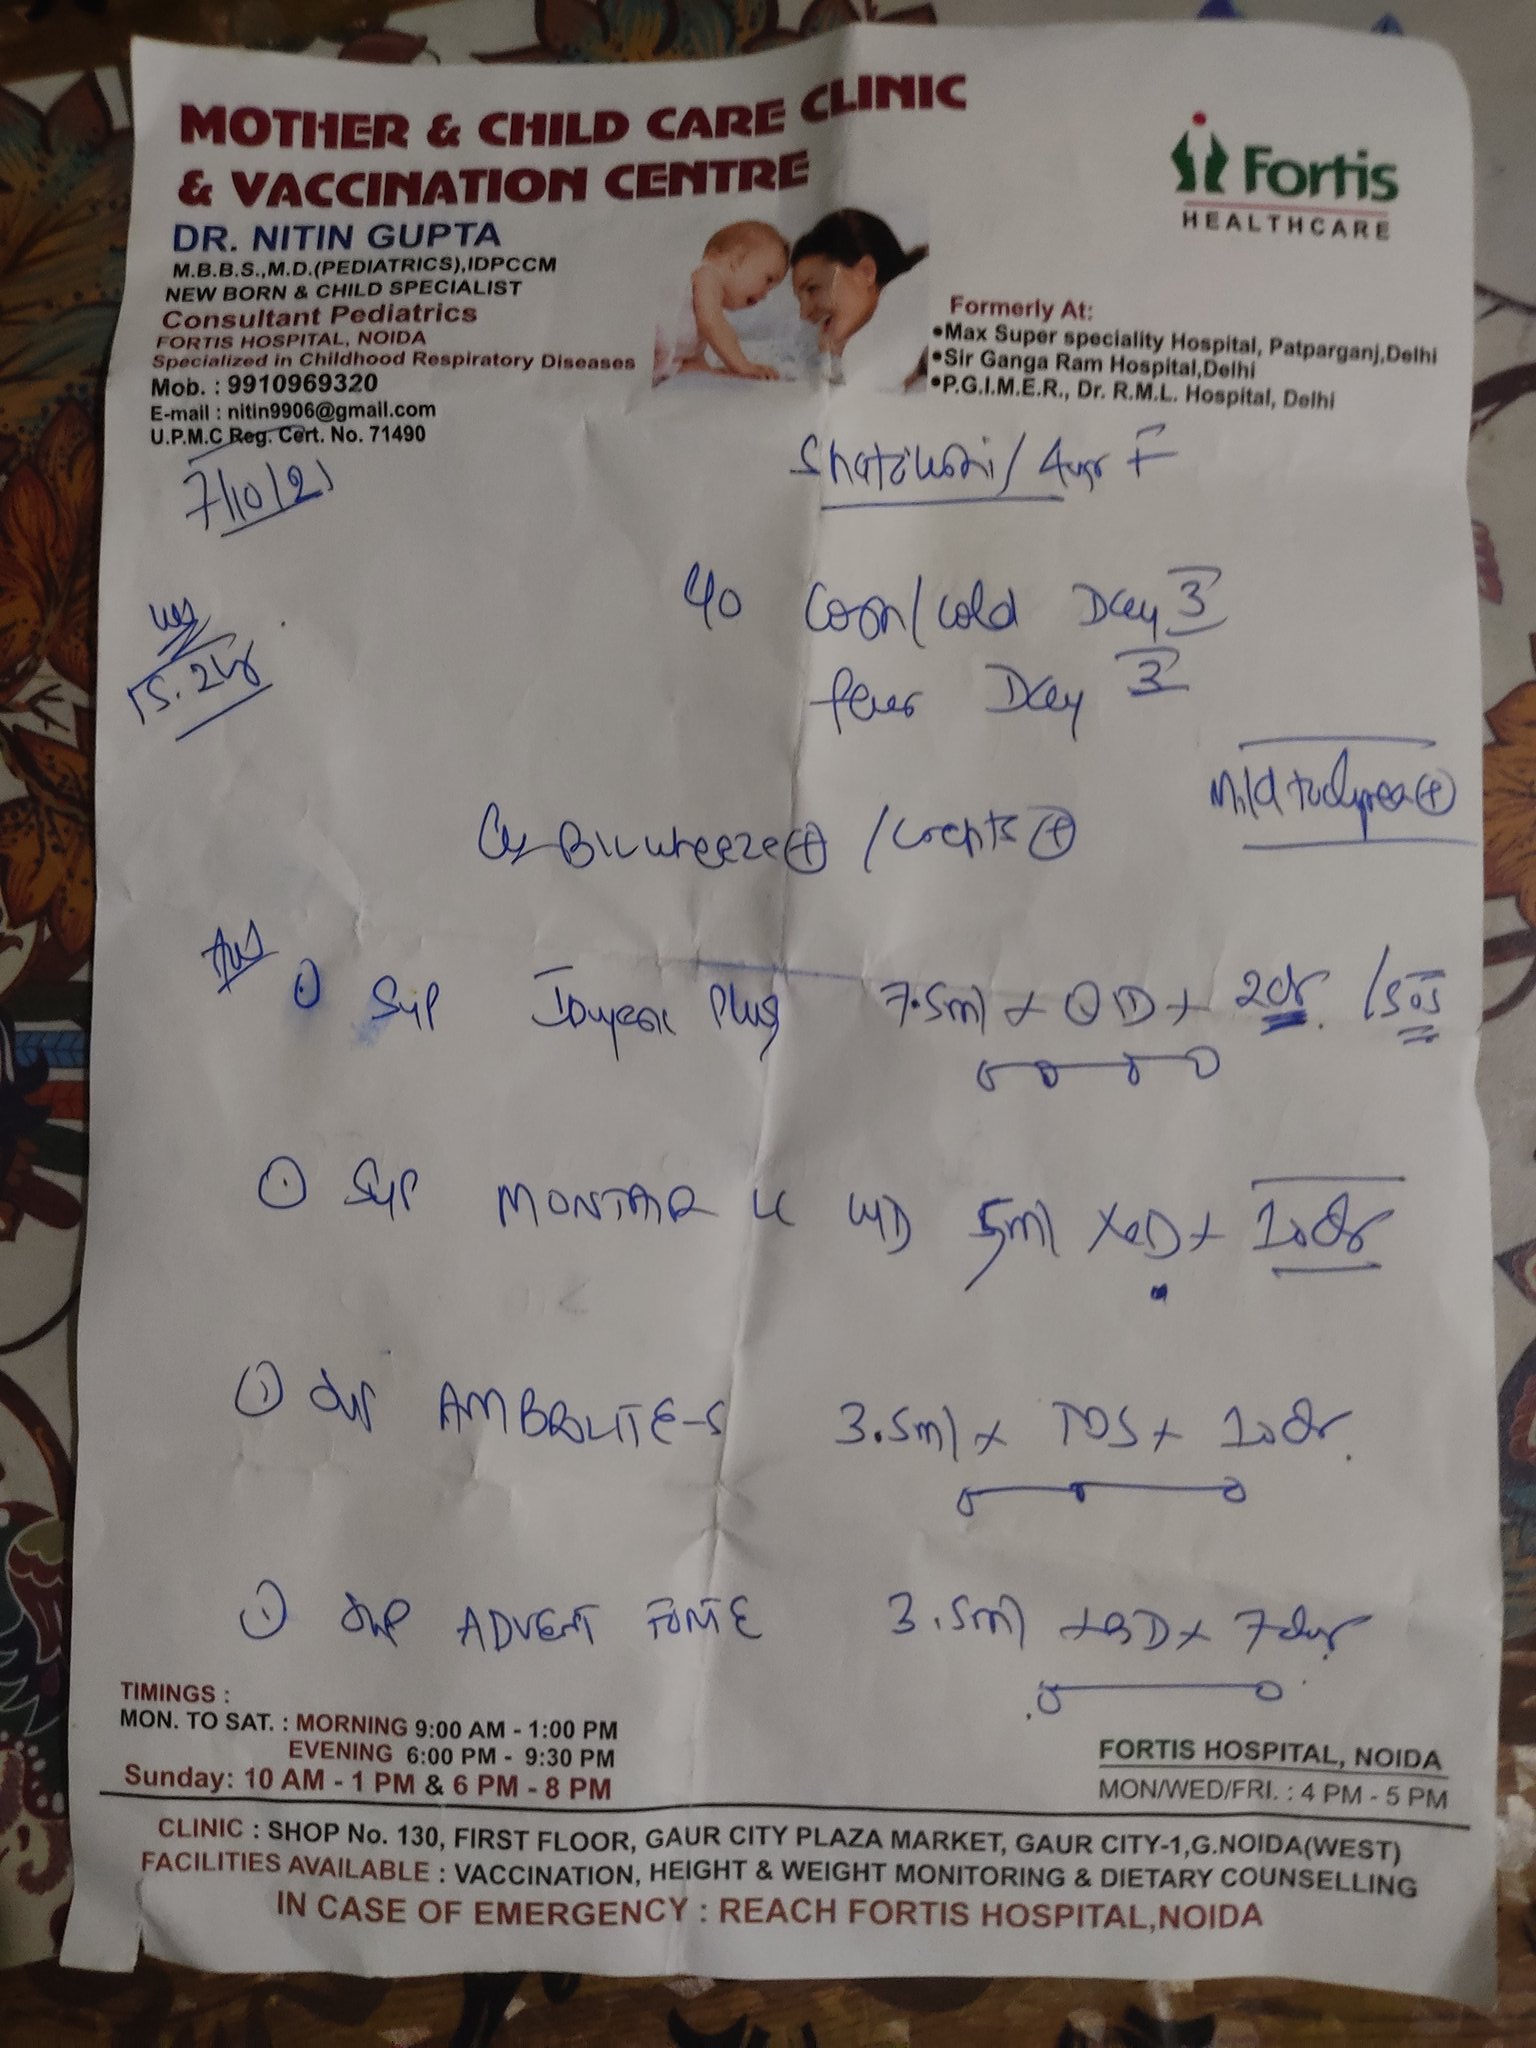 MOTHER & CHILD CARE CLINIC
& VACCINATION CENTRE
DR. NITIN GUPTA
M.B.B.S.,M.D.(PEDIATRICS),IDPCCM
NEW BORN & CHILD SPECIALIST
Consultant Pediatrics
FORTIS HOSPITAL, NOIDA
Specialized in Childhood Respiratory Diseases
Mob. : 9910969320
E-mail : nitin9906@gmail.com
U.P.M.C Reg. Cert. No. 71490
Fortis
HEALTHCARE
Formerly At:
•Max Super speciality Hospital, Patparganj,Delhi
•Sir Ganga Ram Hospital,Delhi
•P.G.I.M.E.R., Dr. R.M.L. Hospital, Delhi
7/10/21
/ 4yr F
/cold Day 3
15.2kg
fever Day 3
Mild
wheeze + / +
Syp Plus 7.5ml x QID x /SOS
Syp MONTAIR LC 5ml x OD x 10
Syp AMBROLITE-S 3.5ml x TDS x 10
Syp ADVENT FORTE 3.5ml x BD x 7 days
TIMINGS :
MON. TO SAT. : MORNING 9:00 AM - 1:00 PM
EVENING 6:00 PM - 9:30 PM
Sunday: 10 AM - 1 PM & 6 PM - 8 PM
FORTIS HOSPITAL, NOIDA
MON/WED/FRI. : 4 PM - 5 PM
CLINIC : SHOP No. 130, FIRST FLOOR, GAUR CITY PLAZA MARKET, GAUR CITY-1,G.NOIDA(WEST)
FACILITIES AVAILABLE : VACCINATION, HEIGHT & WEIGHT MONITORING & DIETARY COUNSELLING
IN CASE OF EMERGENCY : REACH FORTIS HOSPITAL,NOIDA